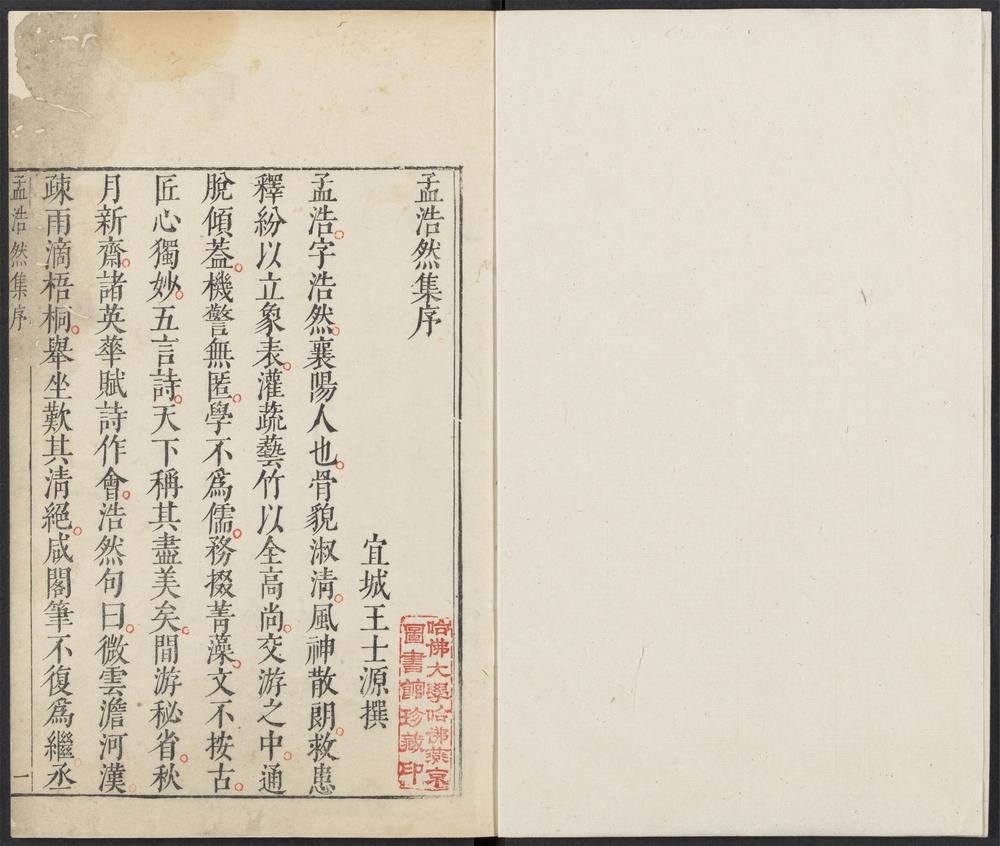 孟浩然集序
宜城王士源撰
孟浩字浩然襄陽人也骨貌淑清風神散朗救患
釋紛以立象表灌蔬藝竹以全高尚交游之中通
脫傾葢機警無匿學不爲儒務掇菁藻文不按古
匠心獨妙五言詩天下稱其盡美矣間游秘省秋
月新齋諸英華賦詩作會浩然句曰微雲澹河漢
疎雨滴梧桐舉坐歎其清絕咸閣筆不復爲繼丞
孟浩然集序
一
哈佛大學哈佛燕京
圖書館珍藏印